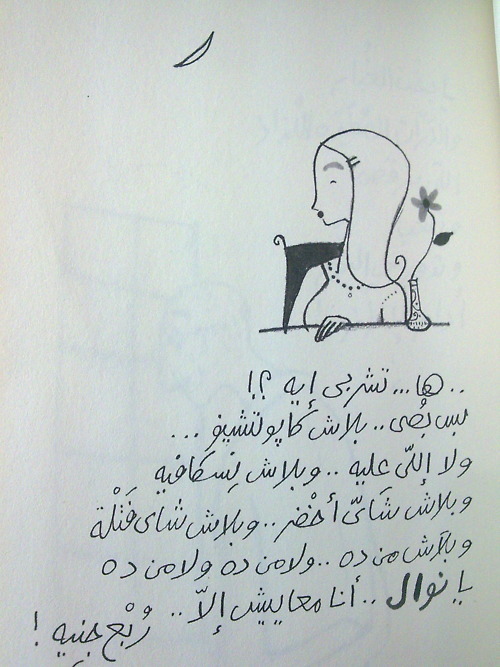 .. ها... تشربى إيه ؟!
بس بُصى.. بلاش كاپوتشينو ...
ولا إللّى عليه .. وبلاش نِسكافيه
وبلاش شَاىّ أخْضر .. وبلاش شاى فَتْلة
وبلاش من ده .. ولا من ده ولا من ده
يا نوال .. أنا معاييش إلاّ .. رُبْع جنيه !